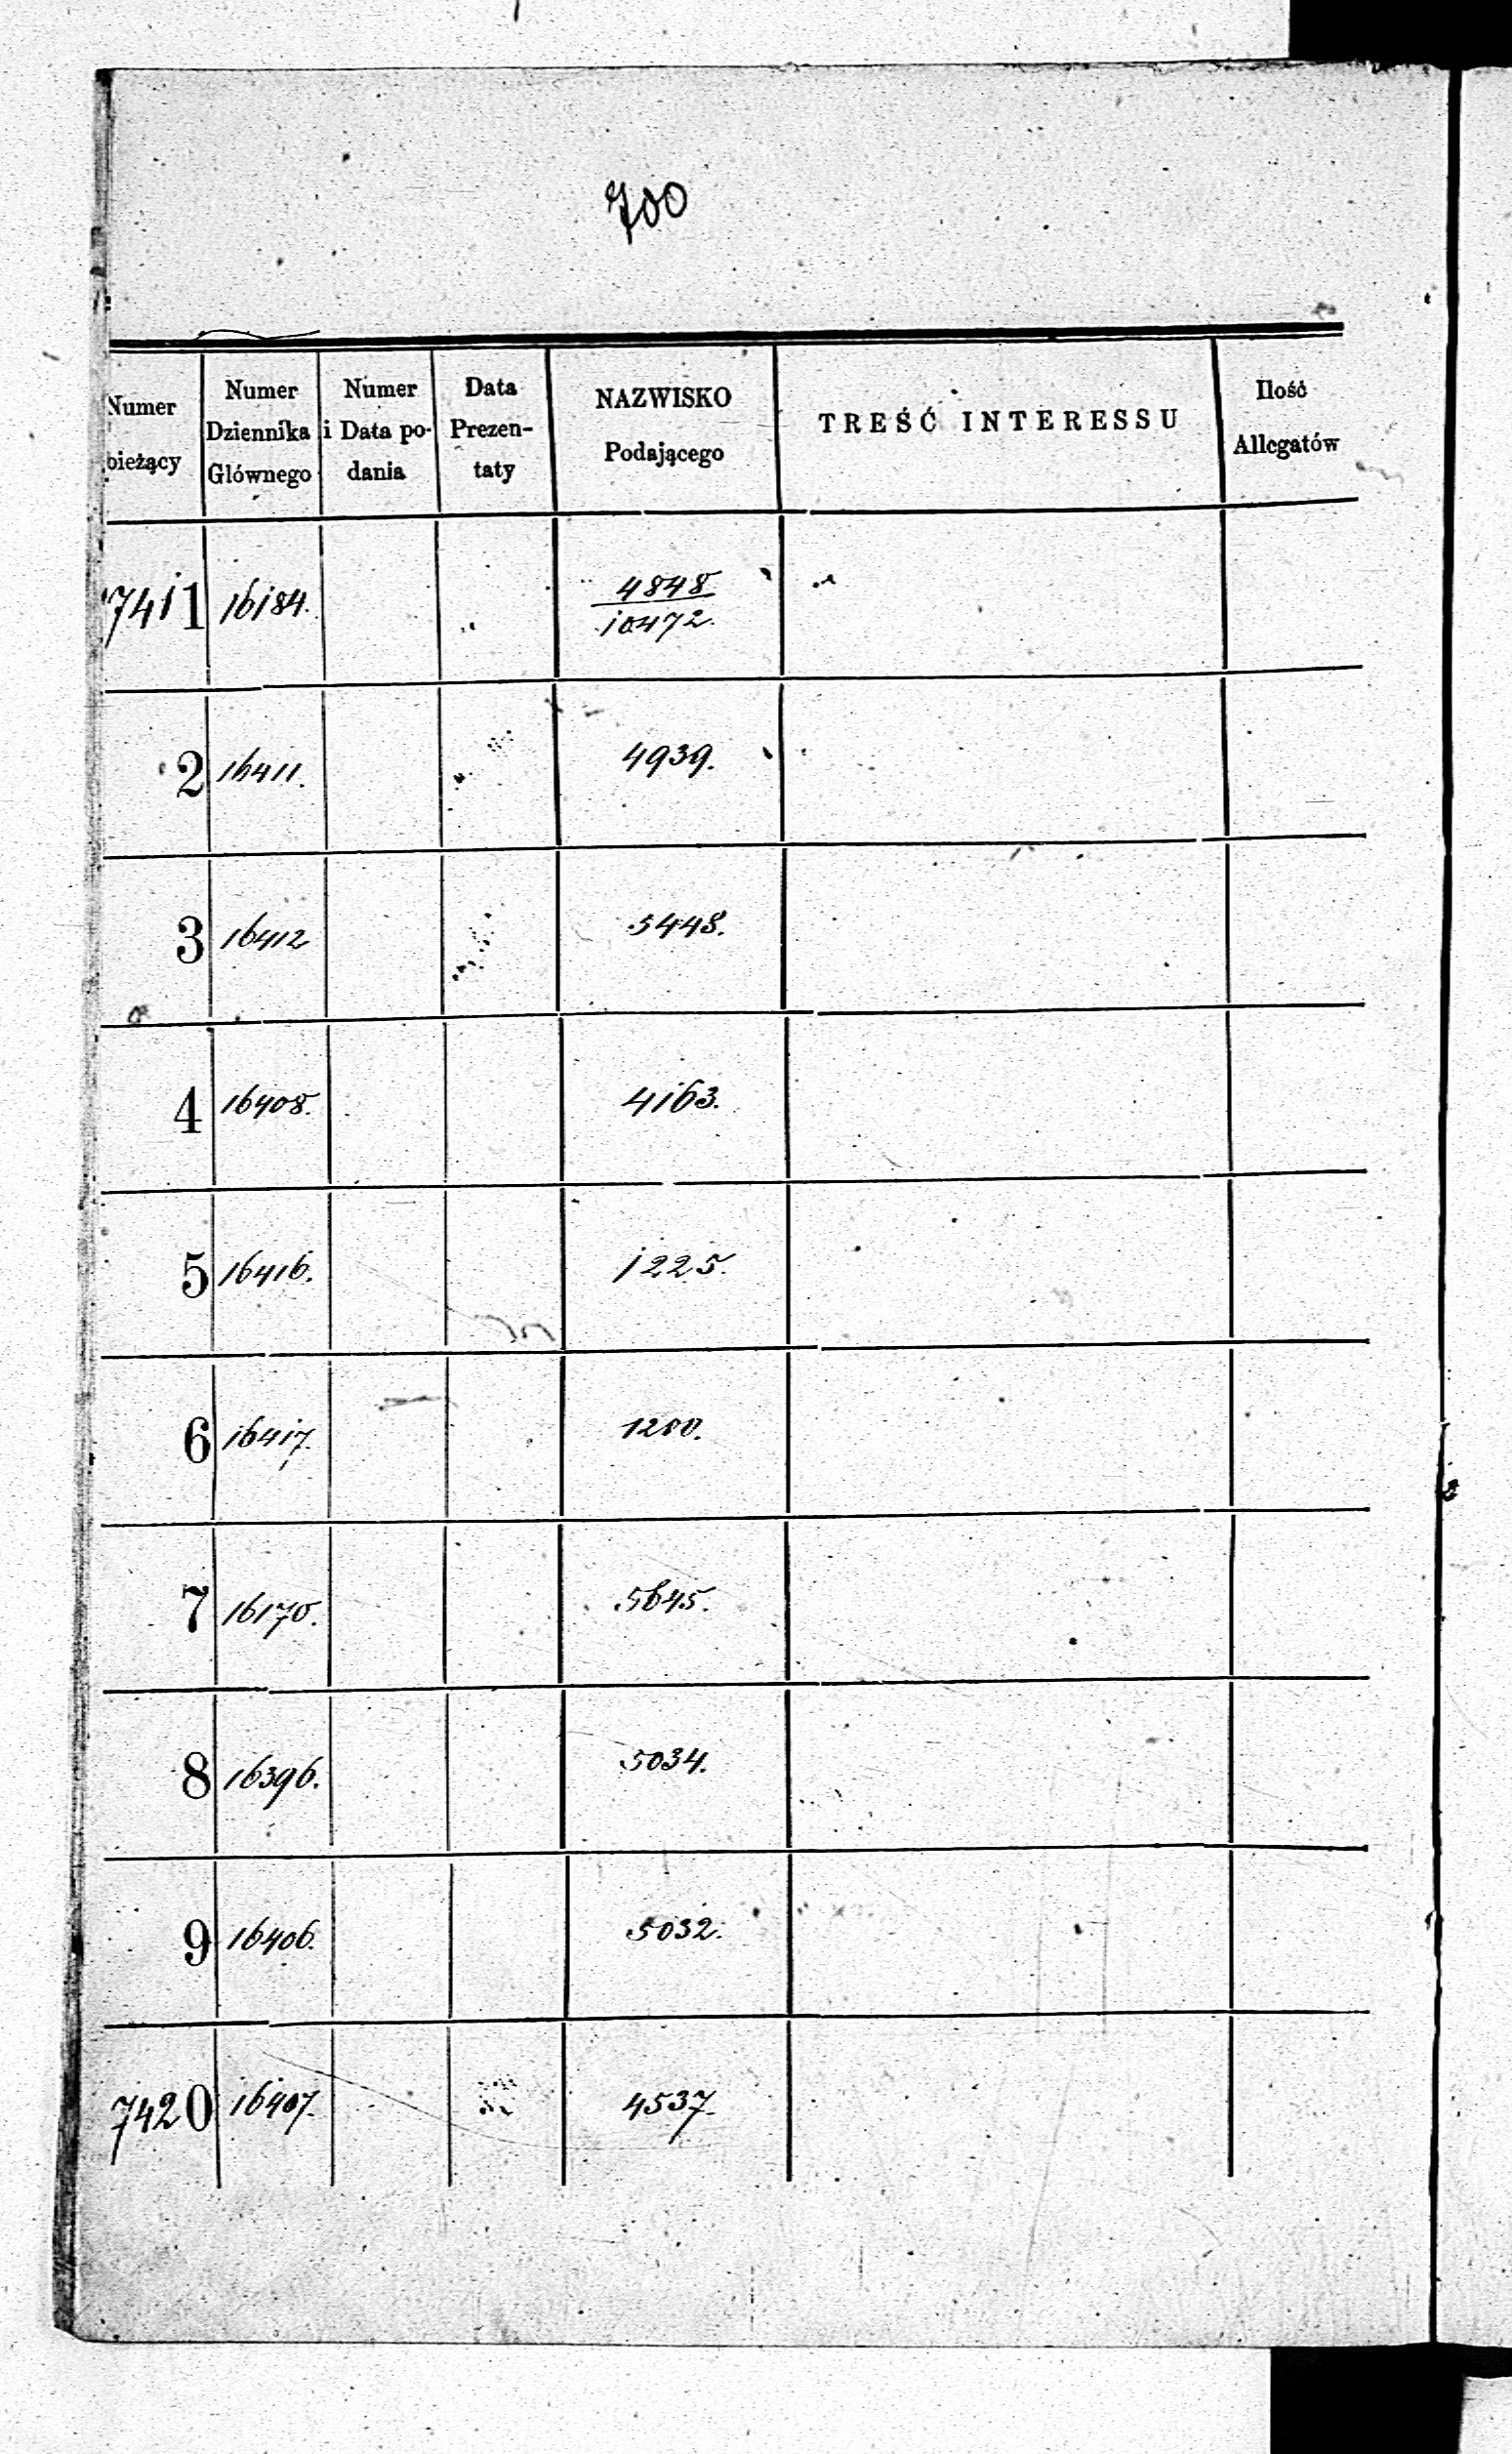 700
Numer bieżący
Numer Dziennika Głównego
Numer i Data podania
Data Prezentaty
NAZWISKO Podającego
TREŚĆ INTERESSU
Ilość Allegatów
7411 16184. 4848
10472.
2 16411. 4939.
3 16412 5448.
4 16408. 4163.
5 16416. 1225.
6 16417. 1280.
7 16170. 5645.
8 16396. 5034.
9 16406. 5032.
7420 16407. 4537.